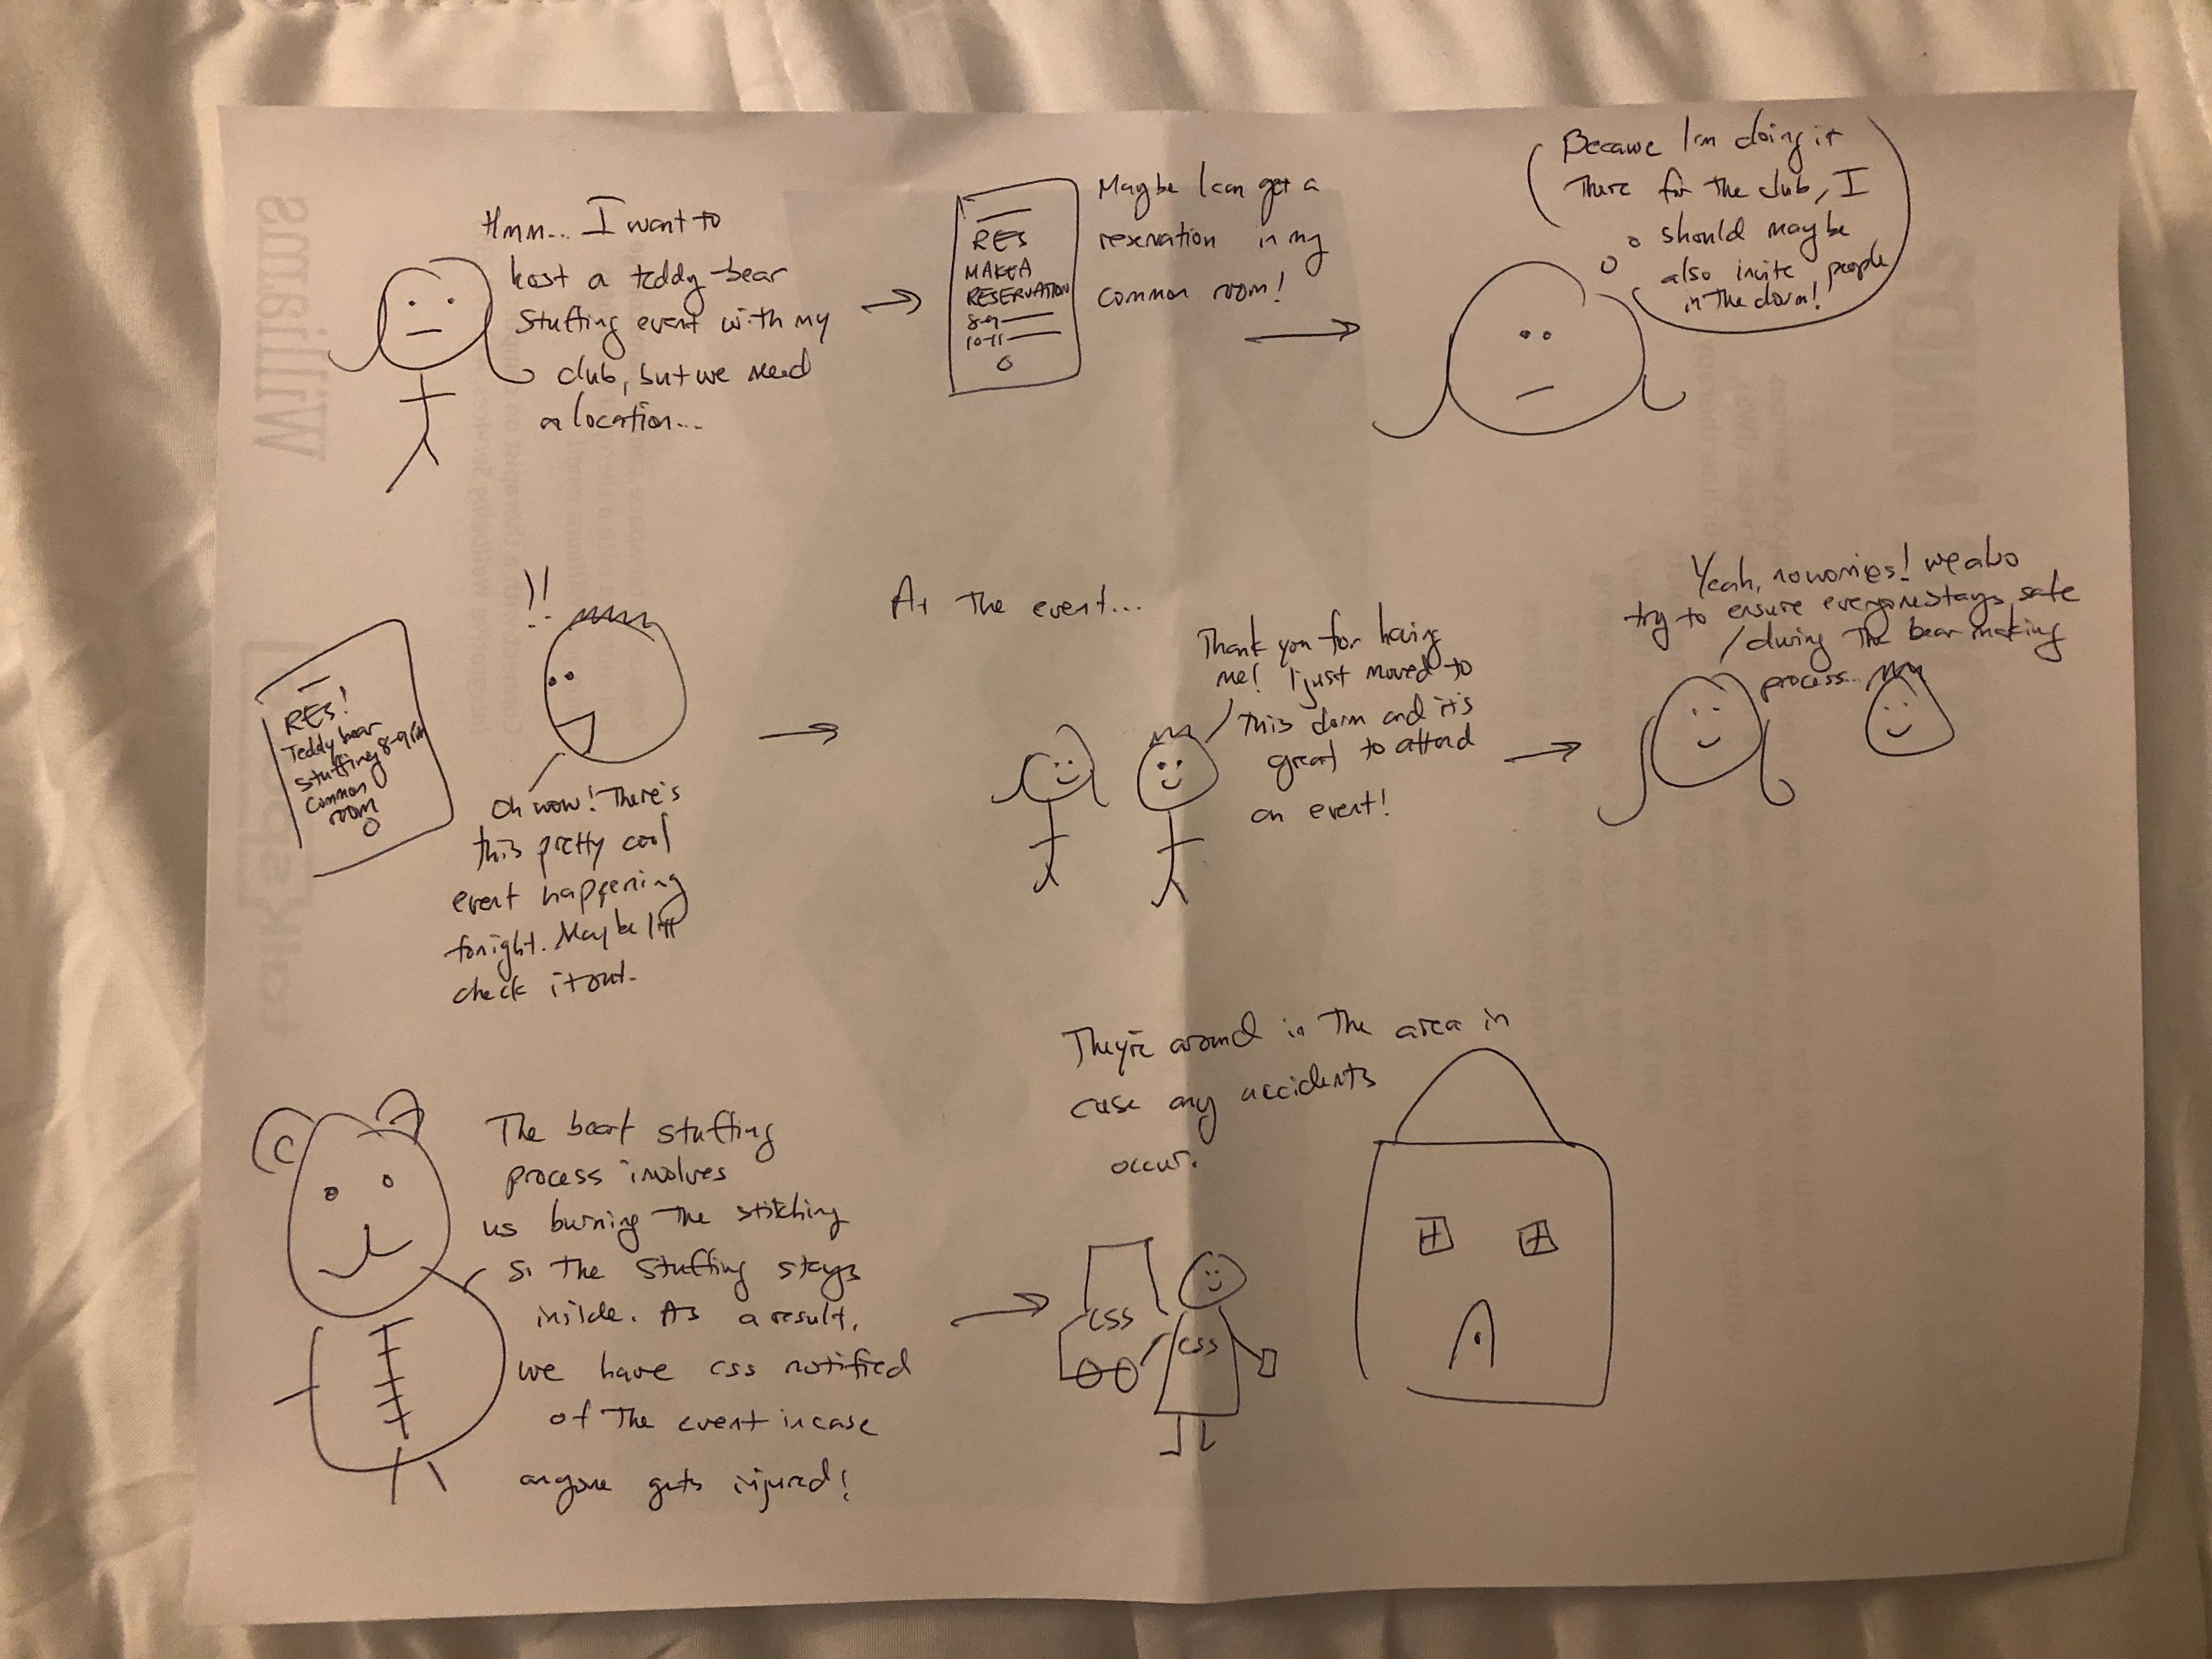 Hmm... I want to
host a teddy-bear
stuffing event with my
club, but we need
a location...
RES
MAKE A
RESERVATION
8-9
10-11
Maybe I can get a
reservation in my
common room!
Because I'm doing it
there for the club, I
should maybe
also invite people
in the dorm!
RES!
Teddy bear
stuffing 8-9
common
room
!!
Oh wow! There's
this pretty cool
event happening
tonight. Maybe I'll
check it out.
At the event...
Thank you for having
me! I just moved to
this dorm and it's
great to attend
an event!
Yeah, no worries! we also
try to ensure everyone stays safe
during the bear making
process...
The bear stuffing
process involves
us burning the stitching
so the stuffing stays
inside. As a result,
we have css notified
of the event in case
anyone gets injured!
They're around in the area in
case any accidents
occur.
CSS
CSS
Williams
talkspace